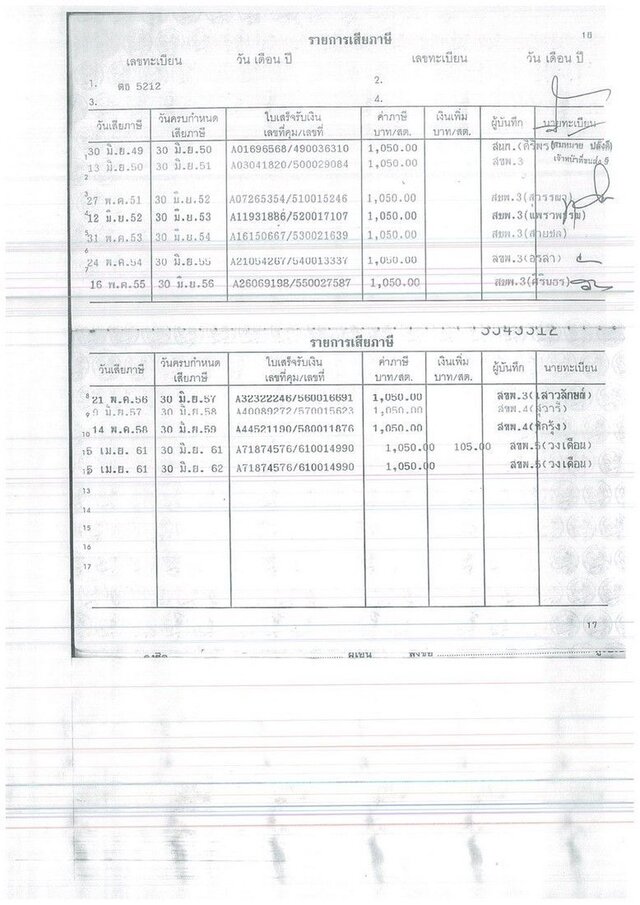 16
รายการเสียภาษี
เลขทะเบียน วัน เดือน ปี เลขทะเบียน วัน เดือน ปี
1. ตอ 5212 2.
3. 4.
วันเสียภาษี วันครบกำหนดเสียภาษี ใบเสร็จรับเงิน เลขที่คุม/เลขที่ ค่าภาษี บาท/สต. เงินเพิ่ม บาท/สต. ผู้บันทึก นายทะเบียน
1 30 มิ.ย.49 30 มิ.ย.50 A01696568/490036310 1,050.00
13 มิ.ย.50 30 มิ.ย.51 A03041820/500029084 1,050.00 สขพ.3
2
3 27 พ.ค.51 30 มิ.ย.52 A07265354/510015246 1,050.00 สขพ.3
4 12 มิ.ย.52 30 มิ.ย.53 A11931886/520017107 1,050.00 สขพ.3
5 31 พ.ค.53 30 มิ.ย.54 A16150667/530021639 1,050.00 สขพ.3
6
24 พ.ค.54 30 มิ.ย.55 A21054267/540013337 1,050.00
7
16 พ.ค.55 30 มิ.ย.56 A26069198/550027587 1,050.00 สขพ.3
รายการเสียภาษี
วันเสียภาษี วันครบกำหนดเสียภาษี ใบเสร็จรับเงิน เลขที่คุม/เลขที่ ค่าภาษี บาท/สต. เงินเพิ่ม บาท/สต. ผู้บันทึก นายทะเบียน
8 21 พ.ค.56 30 มิ.ย.57 A32322246/560016691 1,050.00 สขพ.3(เสาวลักษณ์)
9 9 มิ.ย.57 30 มิ.ย.58 A40089272/570015623 1,050.00 สขพ.4
10 14 พ.ค.58 30 มิ.ย.59 A44521190/580011876 1,050.00 สขพ.4
5 เม.ย. 61 30 มิ.ย. 61 A71874576/610014990 1,050.00 105.00 สขพ.5(วงเดือน)
5 เม.ย. 61 30 มิ.ย. 62 A71874576/610014990 1,050.00 สขพ.5(วงเดือน)
13
14
15
16
17
17